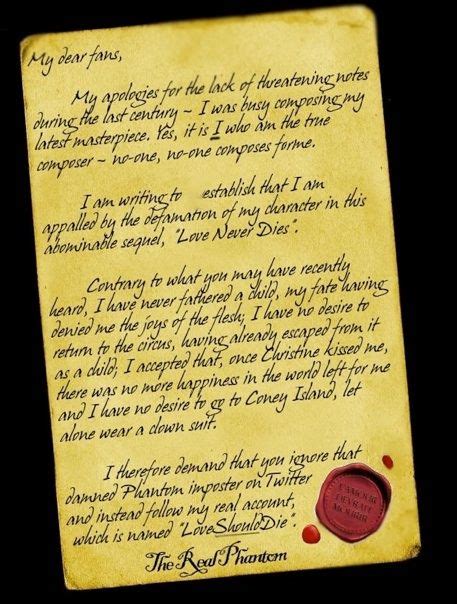 My dear fans,
My apologies for the lack of threatening notes
during the last century ~ I was busy composing my
latest masterpiece. Yes, it is I who am the true
composer ~ no-one, no-one composes for me.
I am writing to establish that I am
appalled by the defamation of my character in this
abominable sequel, "Love Never Dies".
Contrary to what you may have recently
heard, I have never fathered a child, my fate having
denied me the joys of the flesh; I have no desire to
return to the circus, having already escaped from it
as a child; I accepted that, once Christine kissed me,
there was no more happiness in the world left for me
and I have no desire to go to Coney Island, let
alone wear a clown suit.
I therefore demand that you ignore that
damned Phantom imposter on Twitter
and instead follow my real account,
which is named "LoveShouldDie".
The Real Phantom
L'AMOUR
DEVRAIT
MOURIR